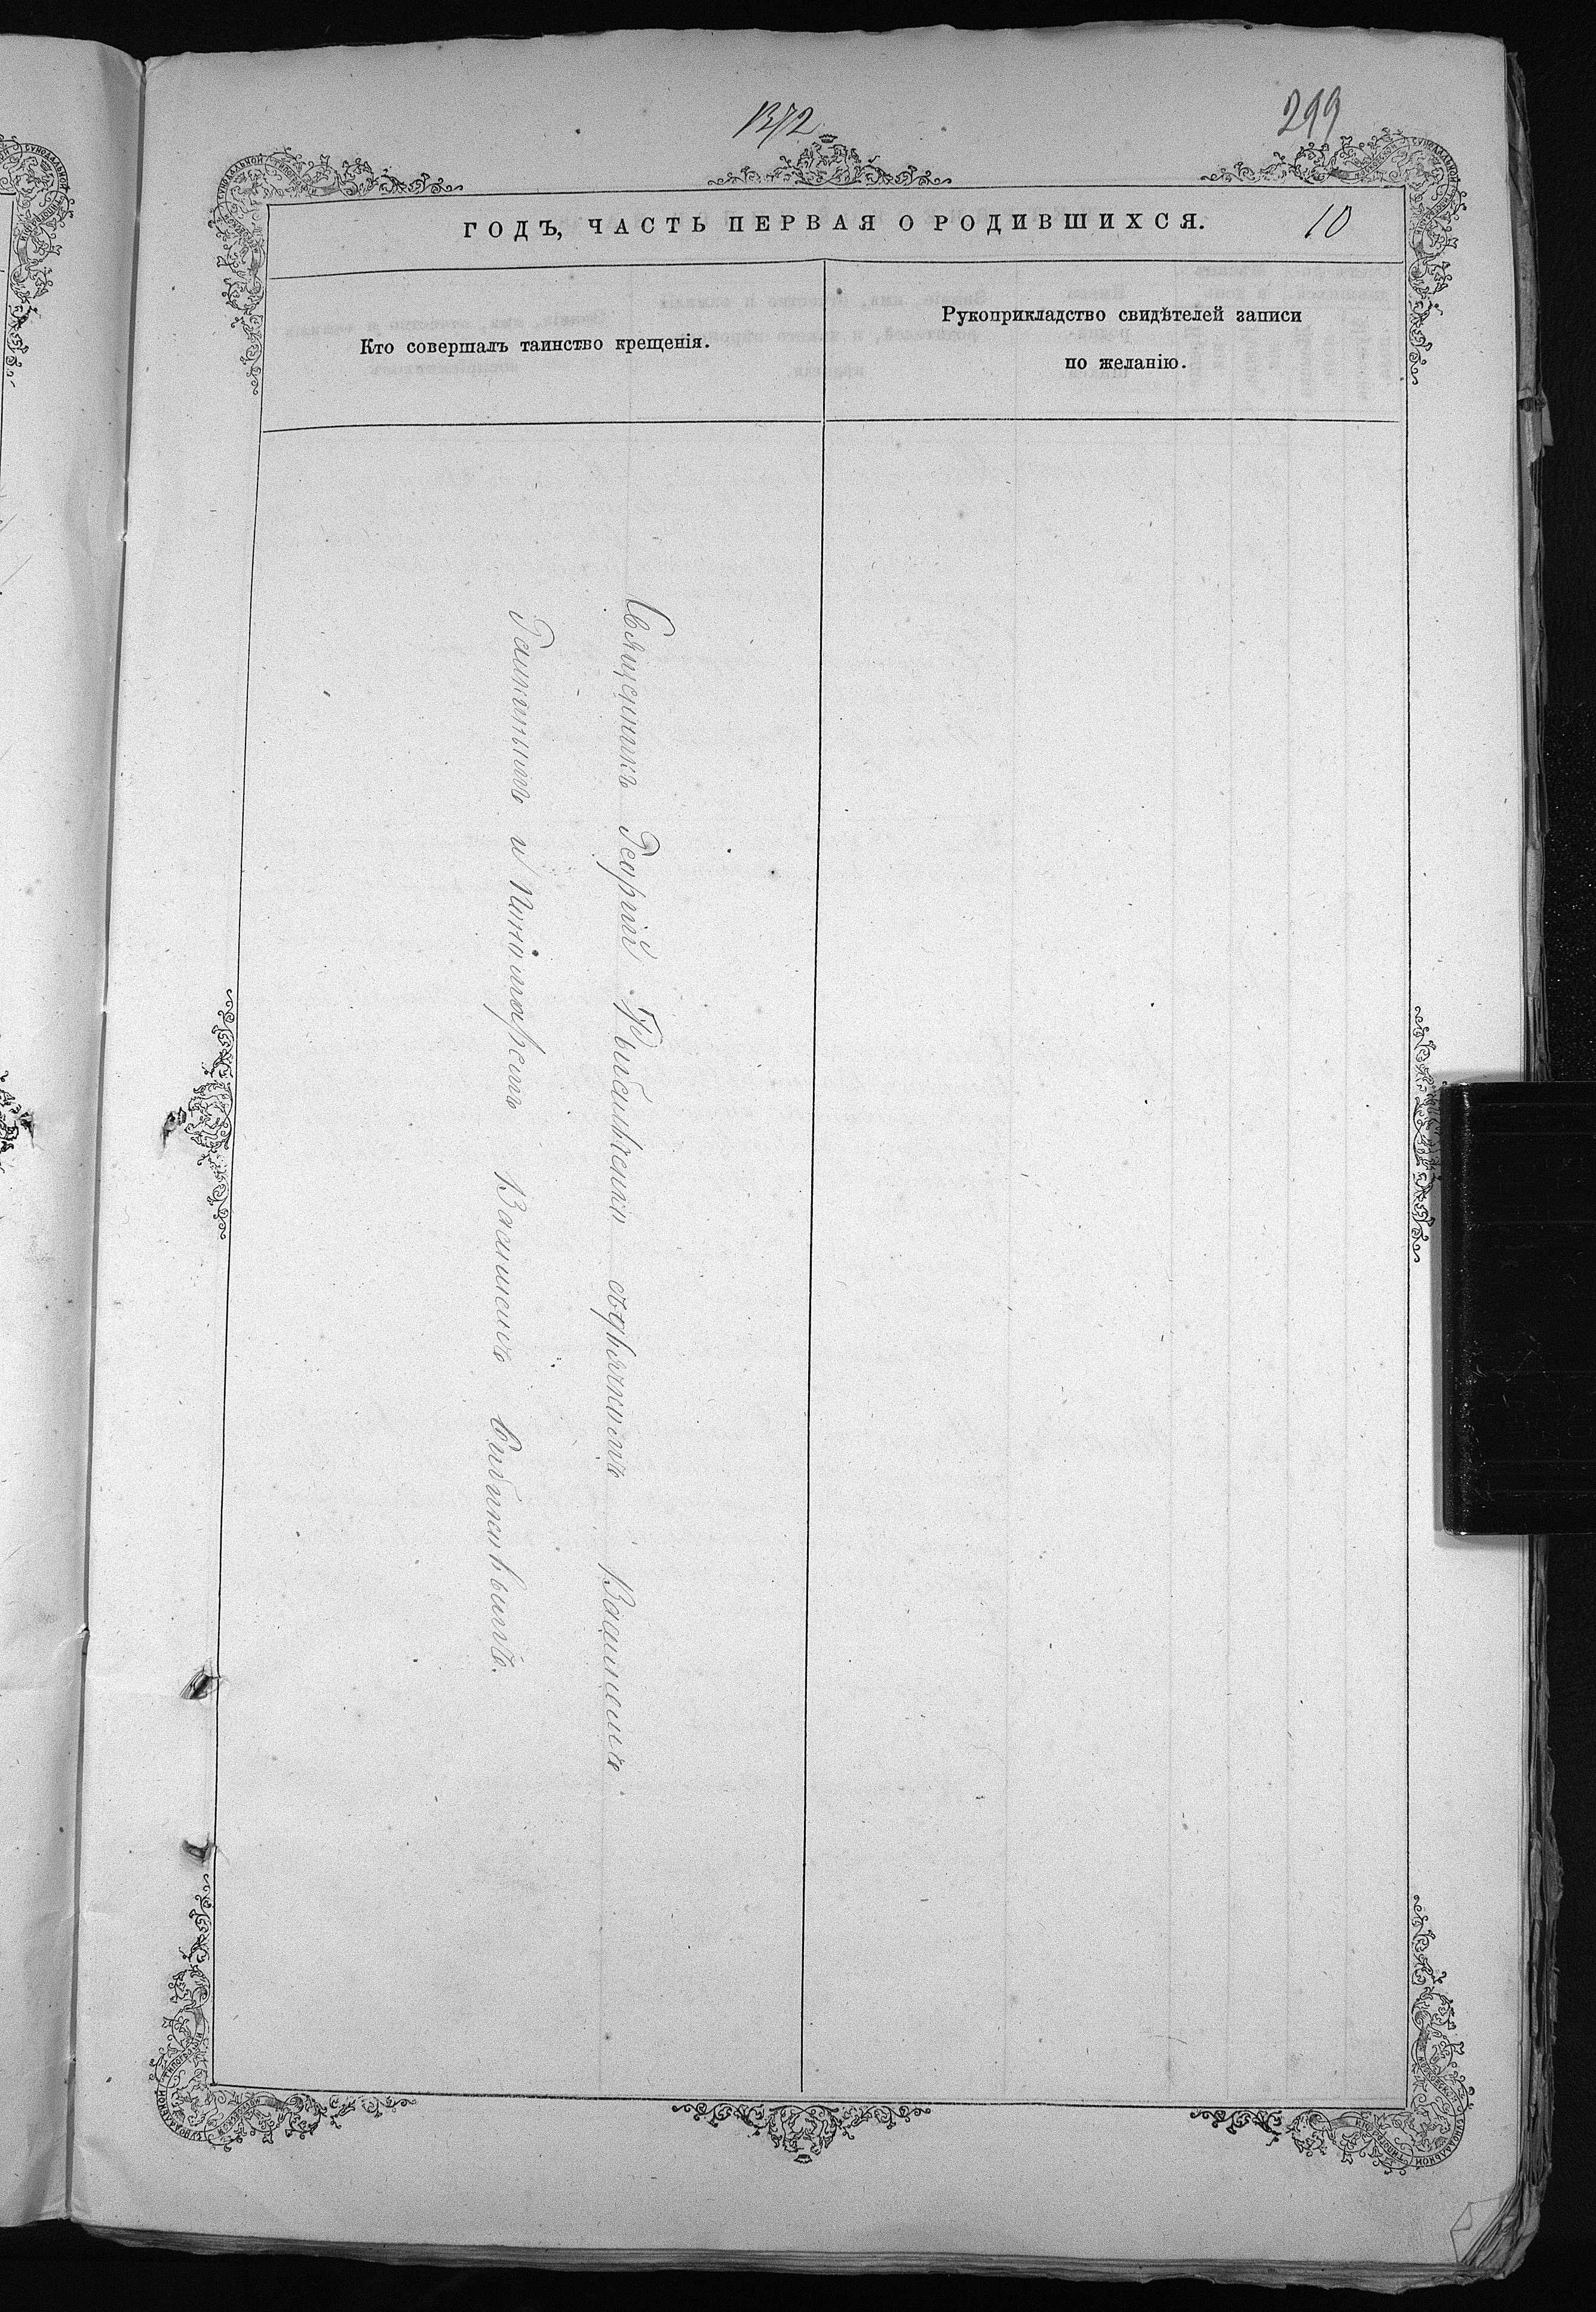 299
ГОДЪ, ЧАСТЬ ПЕРВАЯ О РОДИВШИХСЯ.
10
Кто совершалъ таинство крещенія.
Рукоприкладство свидѣтелей записи
по желанію.
Священникъ Георгій съ дьячкомъ Василіемъ
и Пономаремъ Василіемъ